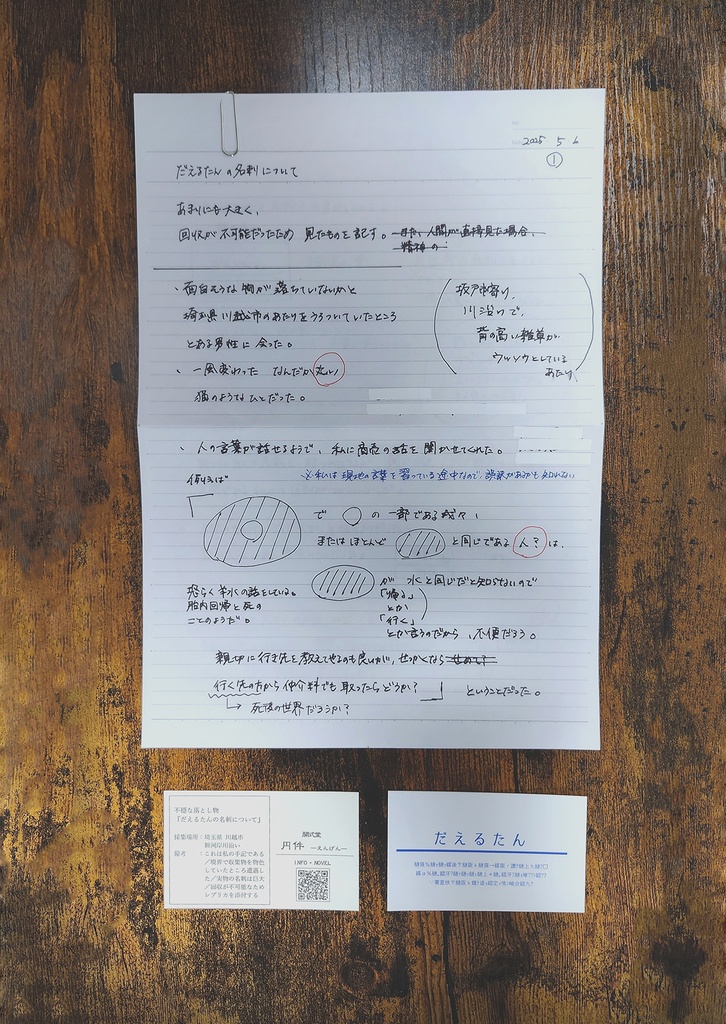 2025 5 6
①
だえるたんの名刺について
あまりにも大きく、
回収が不可能だったため 見たものを記す。また、人間が直接見た場合、
精神の
・面白そうな物が落ちていないかと
埼玉県川越市のあたりをうろついていたところ
とある男性に会った。
・一風変わった なんだか丸い
猫のようなひとだった。
坂戸市寄り、
川沿いで、
背の高い雑草が
ウッソウとしている
あたり
・人の言葉が話せるようで、私に商売の話を聞かせてくれた。
※私は現地の言葉を習っている途中なので、誤訳があるかも知れない
例えば
で ○ の一部である我々、
またはほとんど と同じである 人? は、
が 水と同じだと知らないので
「帰る」
とか
「行く」
とか言うのだから、不便だろう。
恐らく羊水の話をしている。
胎内回帰と死の
ことのようだ。
親切に行き先を教えてやるのも良いが、せっかくなら
行く先の方から仲介料でも取ったらどうか? ということだった。
→ 死後の世界だろうか?
不穏な落とし物
『だえるたんの名刺について』
採集場所:埼玉県 川越市
新河岸川沿い
備考 :これは私の手記である
/境界で収集物を物色
していたところ遭遇し
た/実物の名刺は巨大
/回収が不可能なため
レプリカを添付する
円件 —えんげん—
INFO・NOVEL
だえるたん